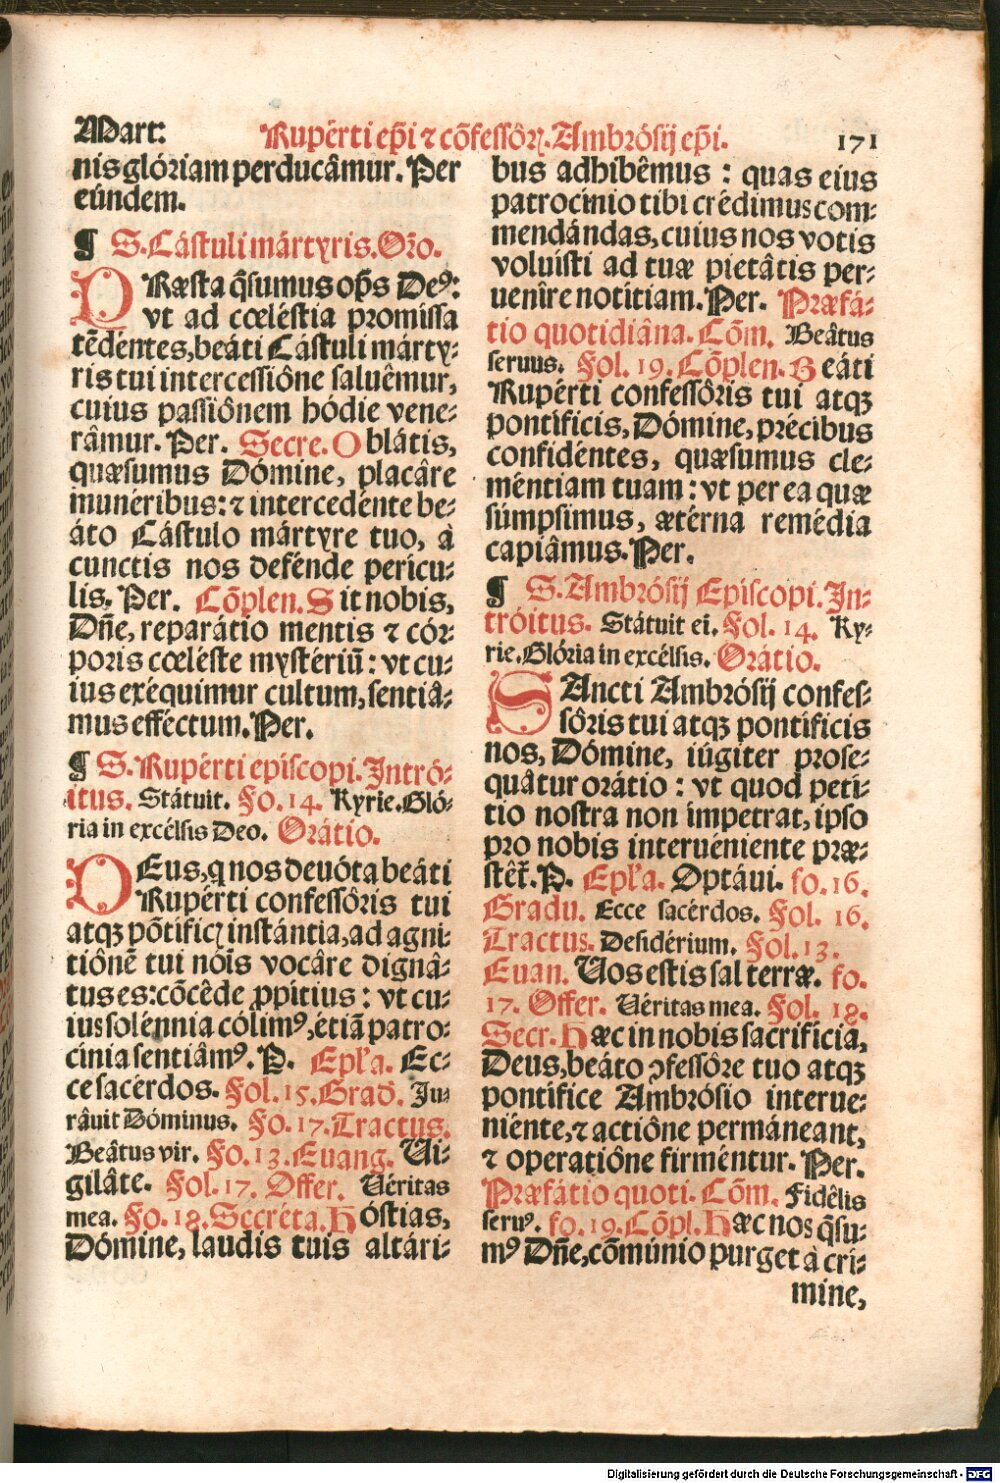 Mart:
Rupérti ep̃i ⁊ cõfessôrꝭ. Ambrósij ep̃i.
171
nis glóriam perducâmur. Per
eúndem.
¶ S. Cástuli mártyris. Orõ.
PRæsta q̃sumus op̃s Deꝰ:
vt ad cœléstia promissa
tẽdéntes, beáti Cástuli márty-
ris tui intercessiône saluêmur,
cuius passiônem hódie vene-
râmur. Per. Secre. Oblátis,
quæsumus Dómine, placâre
munéribus: ⁊ intercedénte be-
áto Cástulo mártyre tuo, à
cunctis nos defénde pericu-
lis. Per. Cõplen. Sit nobis,
Dñe, reparátio mentis ⁊ cór-
poris cœléste mystériũ: vt cu-
ius exéquimur cultum, sentiâ-
mus efféctum. Per.
¶ S. Rupérti epíscopi. Intró-
itus. Státuit. Fo. 14. Kyrie. Gló-
ria in excélsis Deo. Orátio.
DEus, q̃ nos deuóta beáti
Rupérti confessôris tui
atqꝫ põtificꝭ instántia, ad agni-
tiônẽ tui nóis vocâre dignâ-
tus es: cõcêde ꝓpítius: vt cu-
ius solénnia cólimꝰ, étiã patro-
cínia sentiâmꝰ. P. Epľa. Ec-
ce sacérdos. Fol. 15. Grad. Ju-
râuit Dóminus. Fo. 17. Tractus.
Beâtus vir. Fo. 13. Euang. Vi-
gilâte. Fol. 17. Offer. Véritas
mea. Fo. 18. Secréta. Hóstias,
Dómine, laudis tuis altári-
bus adhibêmus: quas eius
patrocínio tibi crédimus com-
mendándas, cuius nos votis
voluísti ad tuæ pietâtis per-
uenîre notítiam. Per. Præfá-
tio quotidiâna. Cõm. Beâtus
seruus. Fol. 19. Cõplen. Beáti
Rupérti confessôris tui atqꝫ
pontíficis, Dómine, précibus
confidéntes, quæsumus cle-
méntiam tuam: vt per ea quæ
súmpsimus, ætérna remédia
capiâmus. Per.
¶ S. Ambrósij Episcopi. In-
tróitus. Státuit ei. Fol. 14. Ky-
rie. Glória in excélsis. Orátio.
SAncti Ambrósij confes-
sôris tui atqꝫ pontíficis
nos, Dómine, iúgiter prose-
quâtur orátio: vt quod petí-
tio nostra non ímpetrat, ipso
pro nobis interueniente præ-
stẽt̃. P. Epľa. Optáui. fo. 16.
Gradu. Ecce sacérdos. Fol. 16.
Tractus. Desidérium. Fol. 13.
Euan. Vos estis sal terræ. fo.
17. Offer. Véritas mea. Fol. 18.
Secr. Hæc in nobis sacrifícia,
Deus, beáto ꝯfessôre tuo atqꝫ
pontífice Ambrósio interue-
niénte, ⁊ actiône permáneant,
⁊ operatiône firméntur. Per.
Præfátio quoti. Cõm. Fidêlis
seruꝰ. fo. 19. Cõpl. Hæc nos q̃su-
mꝰ Dñe, cõmúnio purget à crí-
mine,
Digitalisierung gefördert durch die Deutsche Forschungsgemeinschaft - DFG